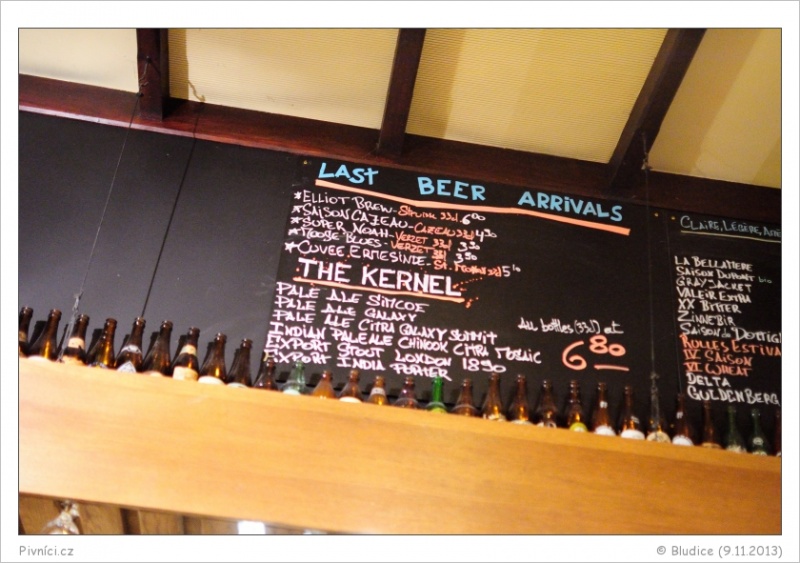 LAST BEER ARRIVALS
*ELLIOT BREW - 33cl 6,00
*SAISON CAZEAU - CAZEAU 33cl 4,50
*SUPER NOAH - VERZET 33cl 3,50
*MOOSE BLUES - VERZET 33cl 3,50
*CUVEE ERMESINDE - St. 33cl 5,10
THE KERNEL
PALE ALE SIMCOE
PALE ALE GALAXY
PALE ALE CITRA GALAXY SUMMIT
INDIAN PALE ALE CHINOOK CITRA MOSAIC
EXPORT STOUT LONDON 1890
EXPORT INDIA PORTER
ALL bottles (33cl) at
6,80
CLAIRE, LEGERE,
LA BELLATERE
SAISON DUPONT bio
GRAY JACKET
VALEIR EXTRA
XX BITTER
ZINNEBIR
SAISON de DOTTIG
RULLES ESTIVA
IV SAISON
VI WHEAT
DELTA
GULDENBERG
Pivníci.cz
© Bludice (9.11.2013)